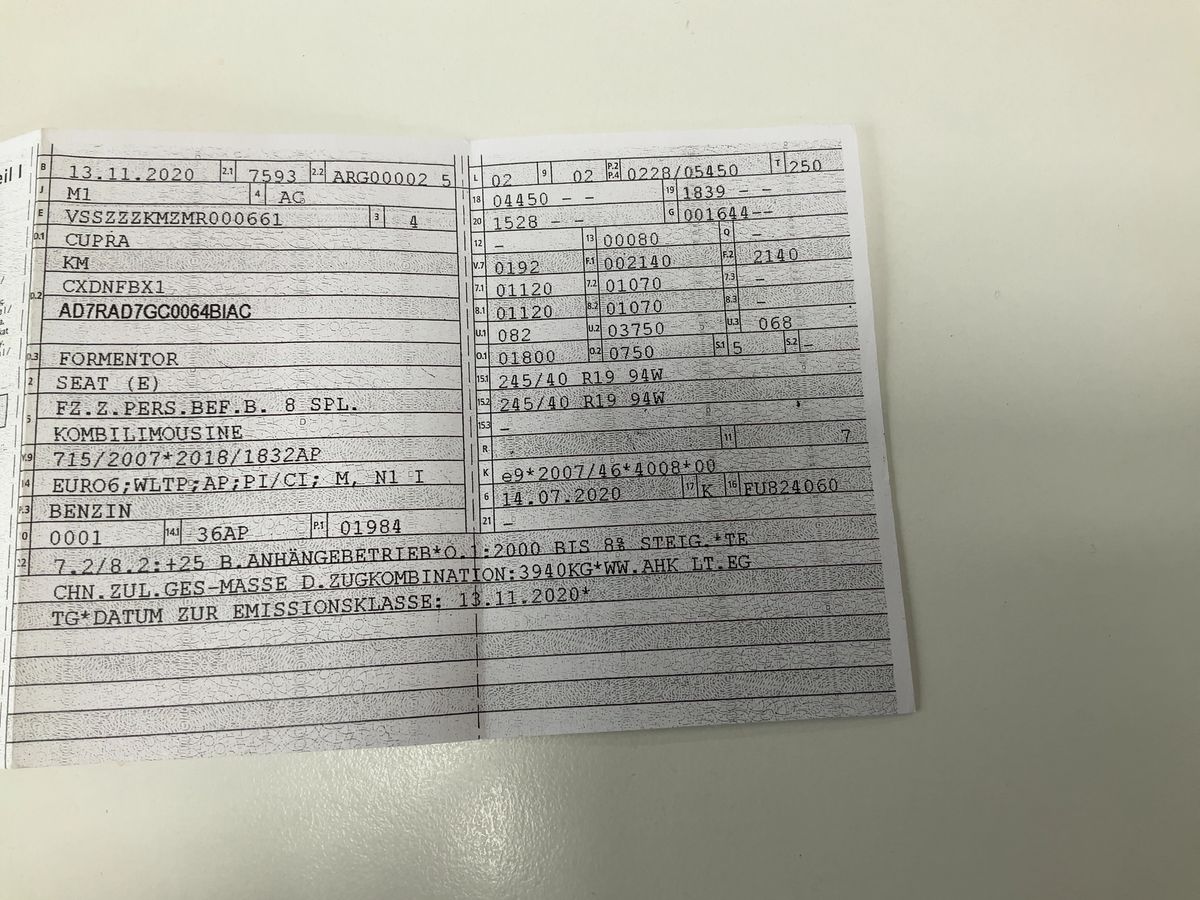 eil I
B 13.11.2020 2.1 7593 2.2 ARG00002 5
J M1 4 AC
E VSSZZZKMZMR000661 3 4
D.1 CUPRA
KM
D.2 CXDNFBX1
AD7RAD7GC0064BIAC
D.3 FORMENTOR
2 SEAT (E)
FZ.Z.PERS.BEF.B. 8 SPL.
5 KOMBILIMOUSINE
V.9 715/2007*2018/1832AP
14 EURO6;WLTP;AP;PI/CI; M, N1 I
P.3 BENZIN
10 0001 14.1 36AP P.1 01984
L 02 9 02 P.2 P.4 0228/05450 T 250
18 04450 - - 19 1839 - -
20 1528 - - G 001644--
12 - 13 00080 Q -
V.7 0192 F.1 002140 F.2 2140
7.1 01120 7.2 01070 7.3 -
8.1 01120 8.2 01070 8.3 -
U.1 082 U.2 03750 U.3 068
O.1 01800 O.2 0750 S.1 5 S.2 -
15.1 245/40 R19 94W
15.2 245/40 R19 94W
15.3 -
R 11 7
K e9*2007/46*4008*00
6 14.07.2020 17 K 16 FU824060
21 -
22 7.2/8.2:+25 B.ANHÄNGEBETRIEB*O.1:2000 BIS 8% STEIG.*TE
CHN.ZUL.GES-MASSE D.ZUGKOMBINATION:3940KG*WW.AHK LT.EG
TG*DATUM ZUR EMISSIONSKLASSE: 13.11.2020*